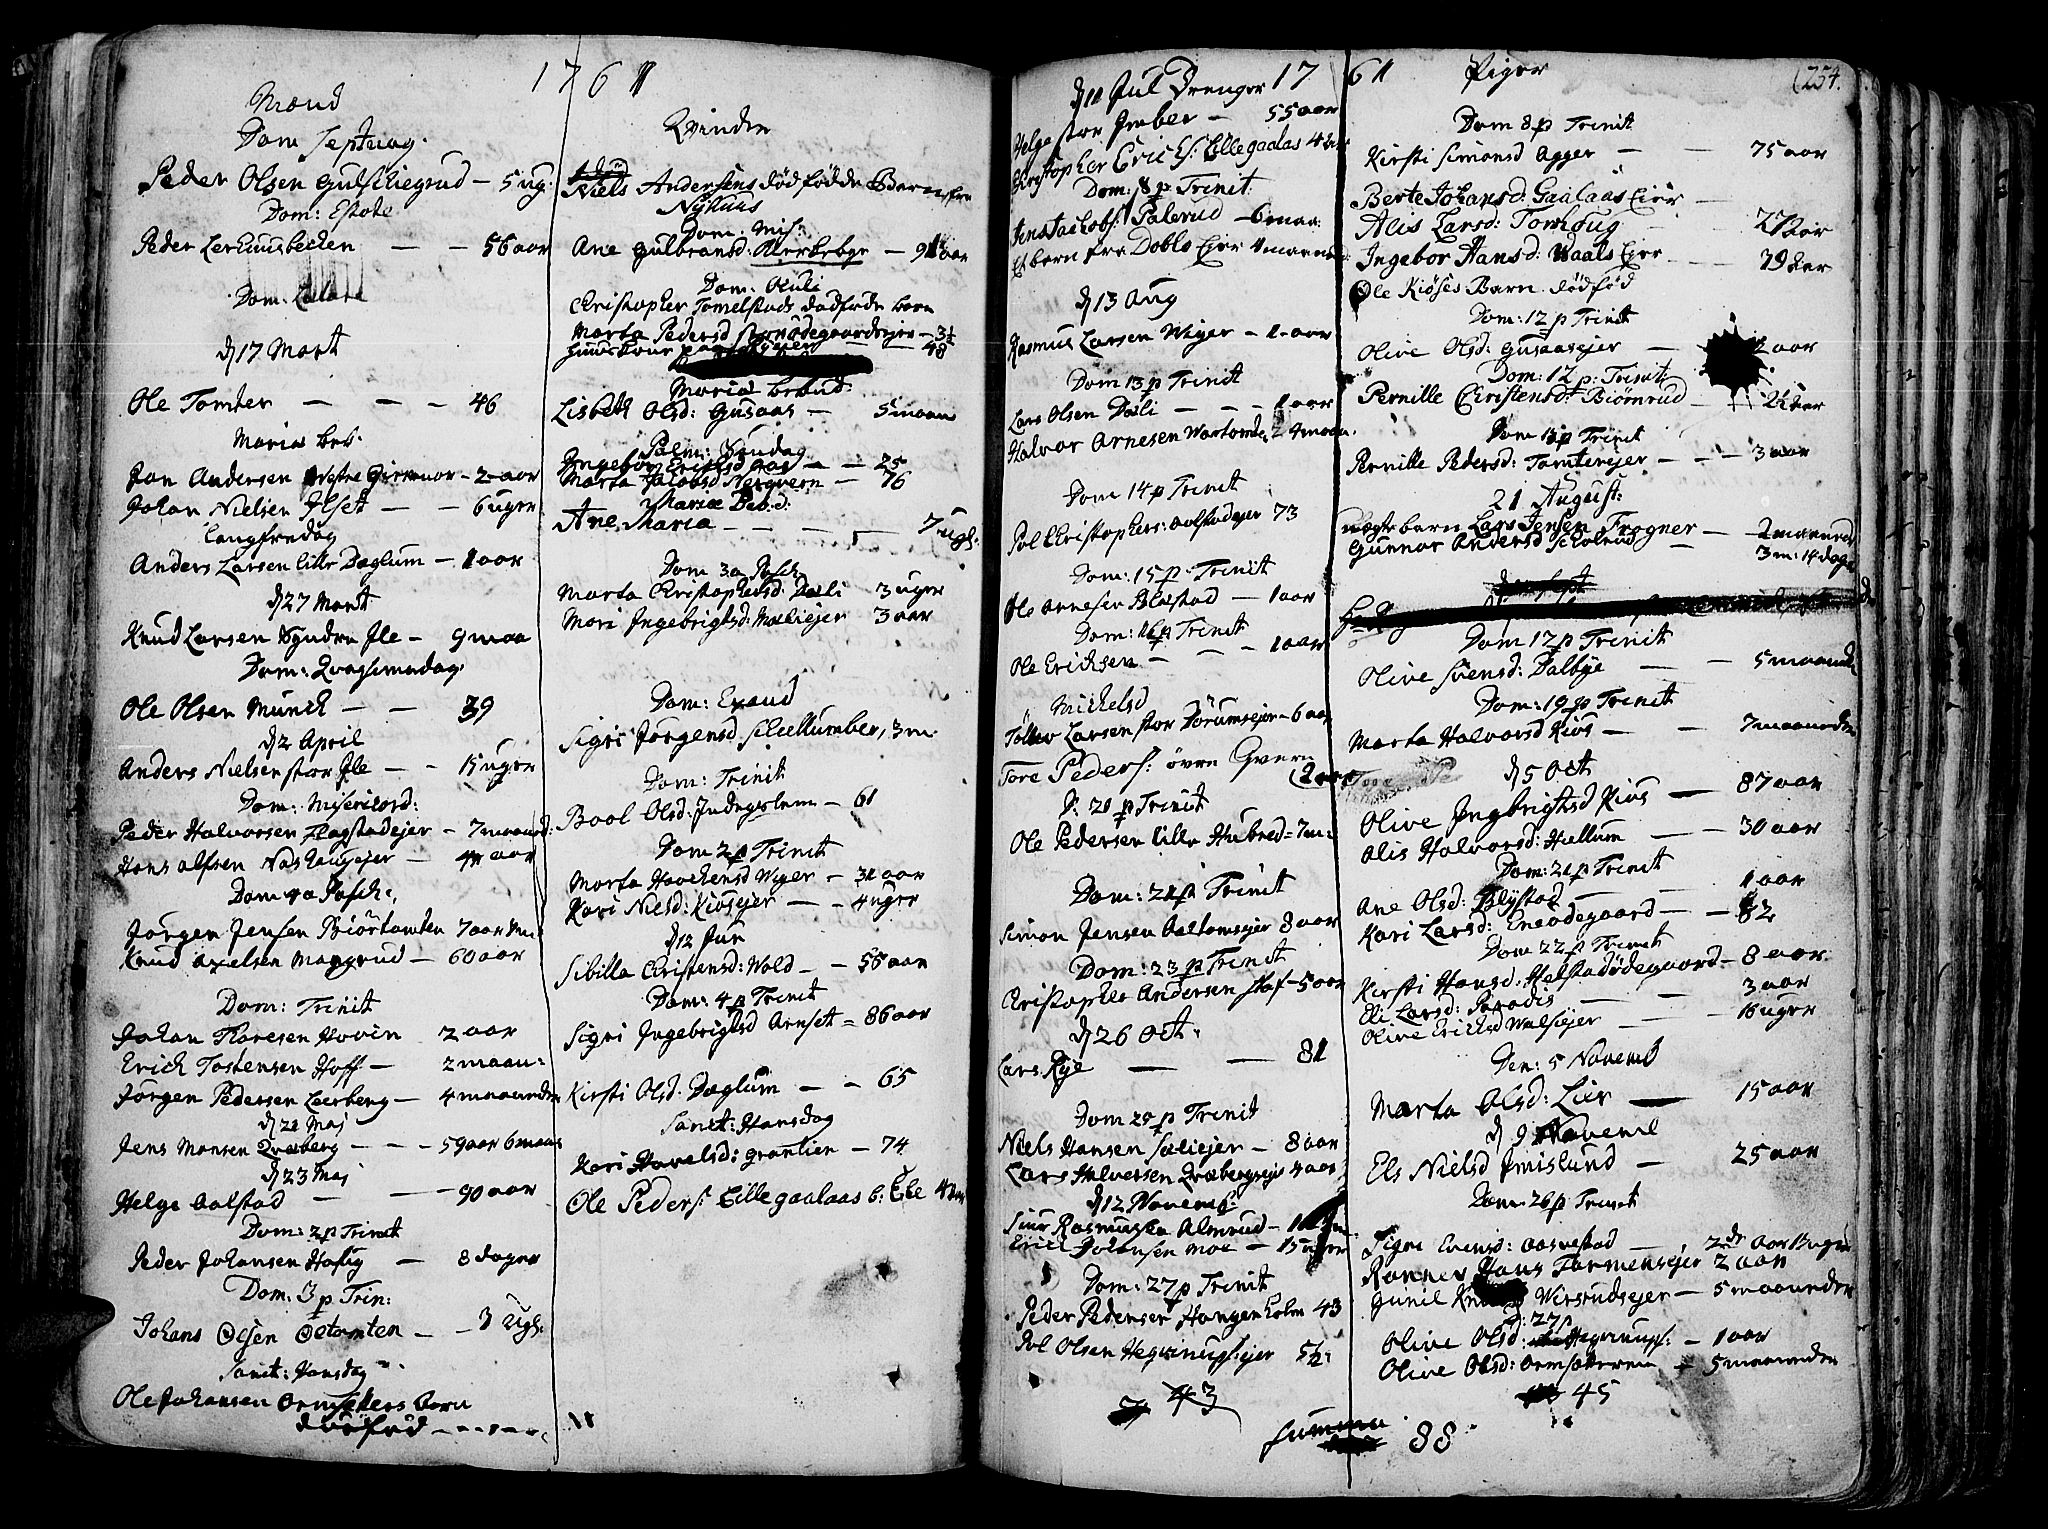 1761
Mænd
Dom Septuag.
Peder Olsen Gulschiegrud - 5 ug:
Dom: Estote
Peder Lerhuusbechen - - 56 aar
Dom: Lætare
d 17 Mart
Ole Tomter - - - 46
Maria beb.
Jon Andersen Westre - 2 aar
Johan Nielsen Ilset - - 6 uger
Langfredag
Anders Larsen lille Dæglum - 1 aar
d 27 Mart
Knud Larsen Syndre Ile - 9 maa
Dom: Qvasimodog
Ole Olsen Munch - - 39
d 2 April
Anders Nielsen stor Ile - - 15 uger
Dom: Misericord:
Peder Halvorsen Flagstadejer - 7 maaned:
Hans Olsen Noshaugejer - aar
Dom 4 a Pasch:
Jørgen Jensen Biørtomten 7 aar
Knud Axelsen Mangrud - 60 aar
Dom: Trinit
Johan Floresen Hovin 2 aar
Erich Tostensen Hoff - 2 maan:
Jørgen Pedersen Leerberg - 4 maaneder
d 21 Maj
Jens Monsen Qvæberg - - - 59 aar 6 maan
d 23 Maj
Helge Aalstad - - - 90 aar
Dom: 2 p Trinit
Peder Johansen Hafug - 8 dager
Dom: 3 p Trin:
Johans Olsen Octomten - - 3 Ugl:
Sanct: Hansdag
Ole Johansen Ormseters barn
dødfød - - - - -
Qvinder
Niels Andersens død fødde Barn fra
Nyhuus
Dom: Mis:
Ane Gulbransd: Kerkebye - 91 aar
Dom: Oculi
Christopher Tomelstads dødfødde barn
Marta Pedersd ødegaardsejer - 3½
48
Maria bebud:
Lisbeth Olsd: Gusaas - 5 maan
Palm: Søndag
Ingebor Erichsd Aas - - 25
Marta Jacobsd Nergvern - 76
Mariæ Beb.d:
Ane Maria - - - - 7 ugl:
Dom 3 a Pasch
Marta Christophersd: Dæli 3 uger
Mari Ingebrigtsd: Mæliejer 3 aar
Dom: Exaud
Sigri Jørgensd Schellumber, 3 m
Dom: Trinit
Bool Olsd: Indegslem - 61
Dom 2 p Trinit
Marta Haachensd Wiger - 31 aar
Kari Nielsd: Kiøsejer - - 4 uger
d 12 Jun
Sibilla Christensd: Wold - - 55 aar
Dom: 4 p Trinit
Sigri Ingebrigtsd Arnset - 86 aar
Kirsti Olsd: Dæglum - - 65
Sanct: Hansdag
Kari Havelsd: Grønlien - 74
Ole Peders: Lille gaalaas b: Else
17 61
d 11 Jul Drenger
Helge stor Imber - 55 aar
Christopher Erichs: Lille gaalas
Dom: 8 p Trinit:
Jens Jacobs: Palerud - 6 maa:
Et barn fra Doblo Ejer 4 maaned
d 13 Aug
Rasmus Larsen Wiger - 1 aar
Dom 13 p Trinit
Lars Olsen Dæli - - - 1 aar
Halvor Arnesen Wortomten 4 maan.
Dom 14 p Trinit
Pol Christophers: Aalstadejer 73
Dom: 15 p. Trinit
Ole Arnesen Blæstad - 1 aar
Dom: 16 p Trinit
Ole Erichsen - - - 1 aar
Michelsd
Tollev Larsen stor Dørumsejer - 6 aar
Tore Peders: øvre Gvern
D: 20 p Trinit
Ole Pedersen lille Hubred - 7 m:
Dom: 21 p Trinit
Simon Jensen Aaltomsejer 8 aar
Dom: 23 p Trinit
Christopher Andersen Hof - 5 aar
d 26 Oct.
Lars Rye - - 81
Dom 25 p Trinit
Niels Hansen Sæliejer - 8 aar
Lars Halversen Qvæbergsejer 4 aar
d 12 Novemb:
Siur Rasmussen Almrud -
Erich Johansen Moe - 15 uger
Dom: 27 p Trinit
Peder Pedersen Hangenholm 43
Pol Olsen Hegvinupsejer 5½
43
Summa 88
Piger
(254.
Dom 8 p Trinit
Kirsti Simonsd Agger - - 75 aar
Berte Johansd: Gaalaas Ejer -
Alis Larsd: Tomhoug - - 27 aar
Ingebor Hansd: Waals Ejer - - 79 aar
Ole Kiøses Barn dødfød
Dom: 12 p Trinit
Olive Olsd: Gusaasejer - aar
Dom: 12 p: Trinit
Pernille Christensd: Biørnrud -
Dom 13 p Trinit
Pernille Pedersd: Tomterejer - - - 3 aar
21 August:
uægte barn Lars Jensen Frogner - 2 maaneder
Gunnor Andersd Scholrud - 3 m: 14 dage
Dom 17 p Trinit
Olive Svensd: Dalbye - - 5 maaned
Dom: 19 p Trinit
Marta Halvorsd Kiøs - - 7 maaneder
d 5 Oct
Olive Ingbrigtsd Kiøs - 87 aar
Alis Halvorsd: Hullum - - 30 aar
Dom: 21 p Trinit
Ane Olsd: Blystad - - 1 aar
Kari Larsd: Eneødegaard - - 82
Dom 22 p Trinit
Kirsti Hansd. Helstadødegaard - 8 aar.
Eli Larsd: Paradis - - 3 aar
Olive Erichsd Wælsiejer - - 16 uger
Den: 5 Novemb
Marta Olsd: Lier - 15 aar
d 9 Novemb
Els Nielsd Imislund - 25 aar
Dom: 26 p Trinit
Sigri Evensd: Aasvestad - 2de aar 11 ugr
Rønnev Hans Formensejer 2 aar
Gunil Wersrudsejer - 5 maaneder
D: 27 p
Olive Olsd: Hegvinups: - 1 aar
Olive Olsd: Ormsæteren - 5 maaneder
45